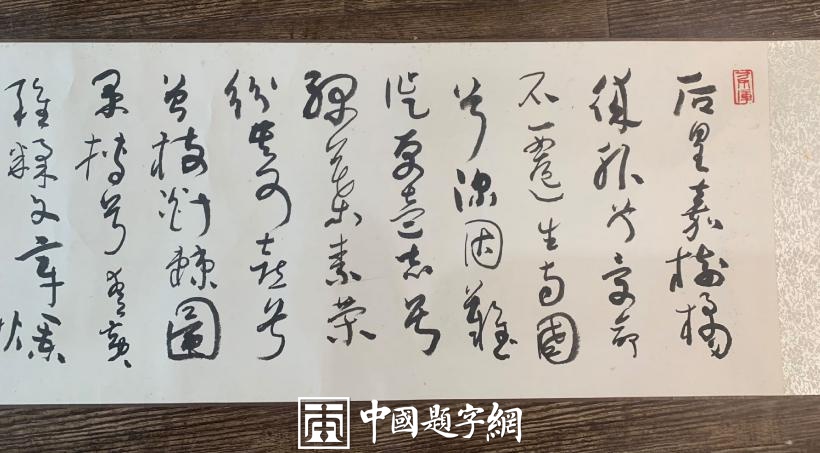 后皇嘉樹橘
徠服兮受命
不遷生南國
兮深固難
徙更壹志兮
綠葉素榮
紛其可喜兮
曾枝剡棘圓
果摶兮青黃
雜糅文章爛
中國題字網